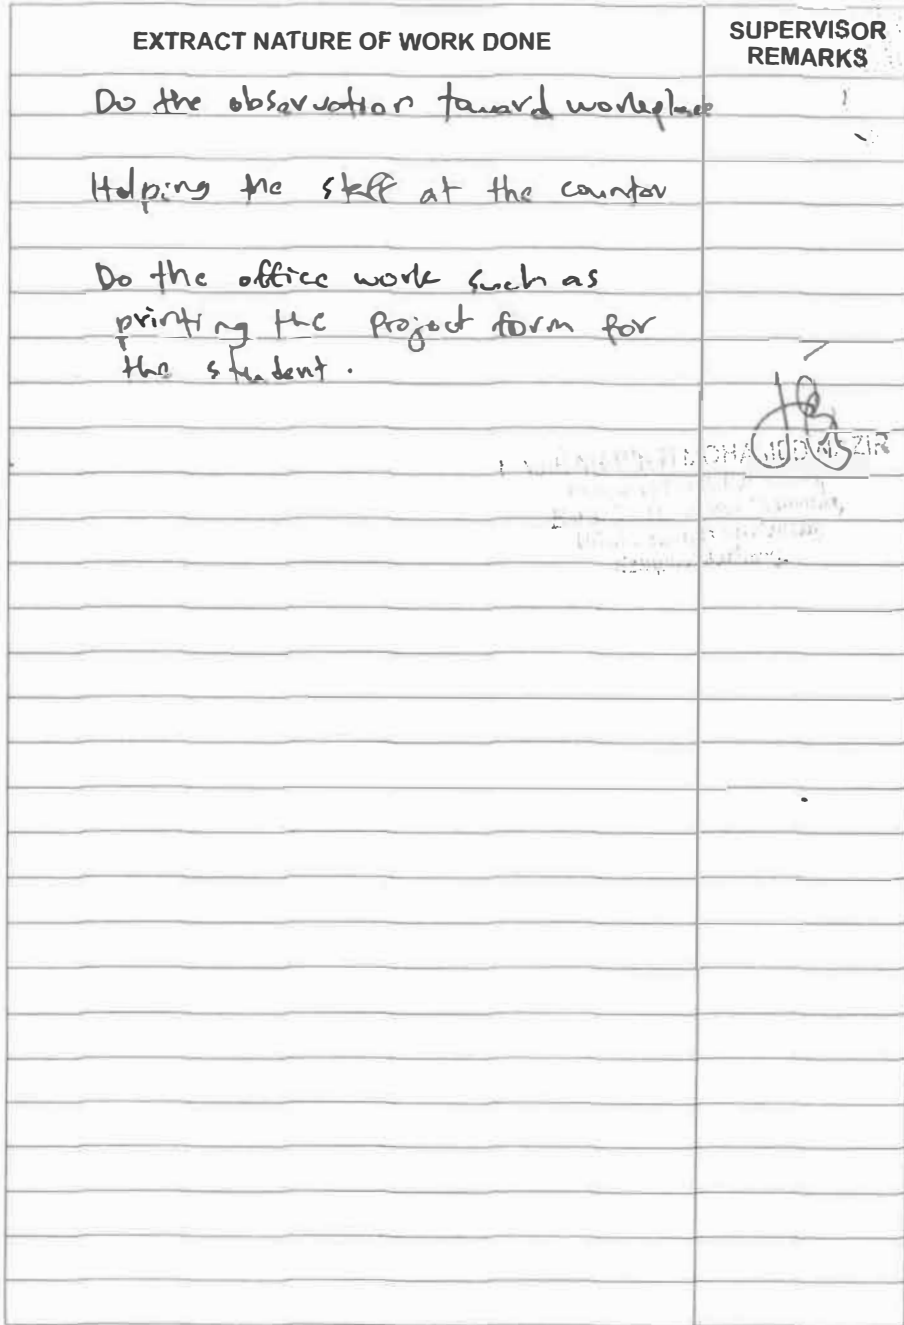 EXTRACT NATURE OF WORK DONE
SUPERVISOR
REMARKS
Do the observation toward workplace
Helping the staff at the counter
Do the office work such as
printing the project form for
the student.